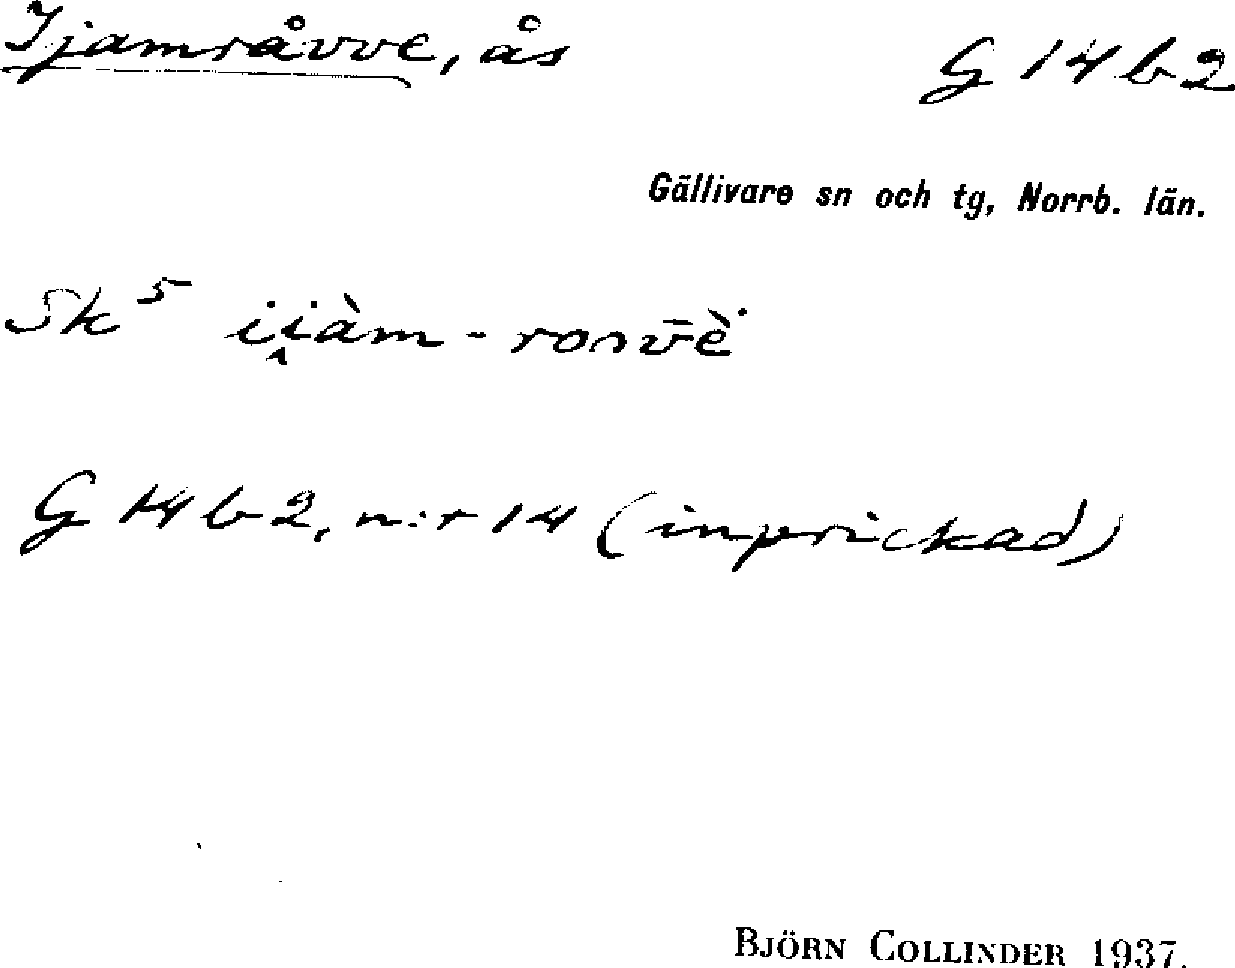 Ijamråvve, ås G 14 b 2
Gällivare sn och tg, Norrb. län.
Sk 5
G 14 b 2, n:r 14 (inprickad)
BJÖRN COLLINDER 1937.